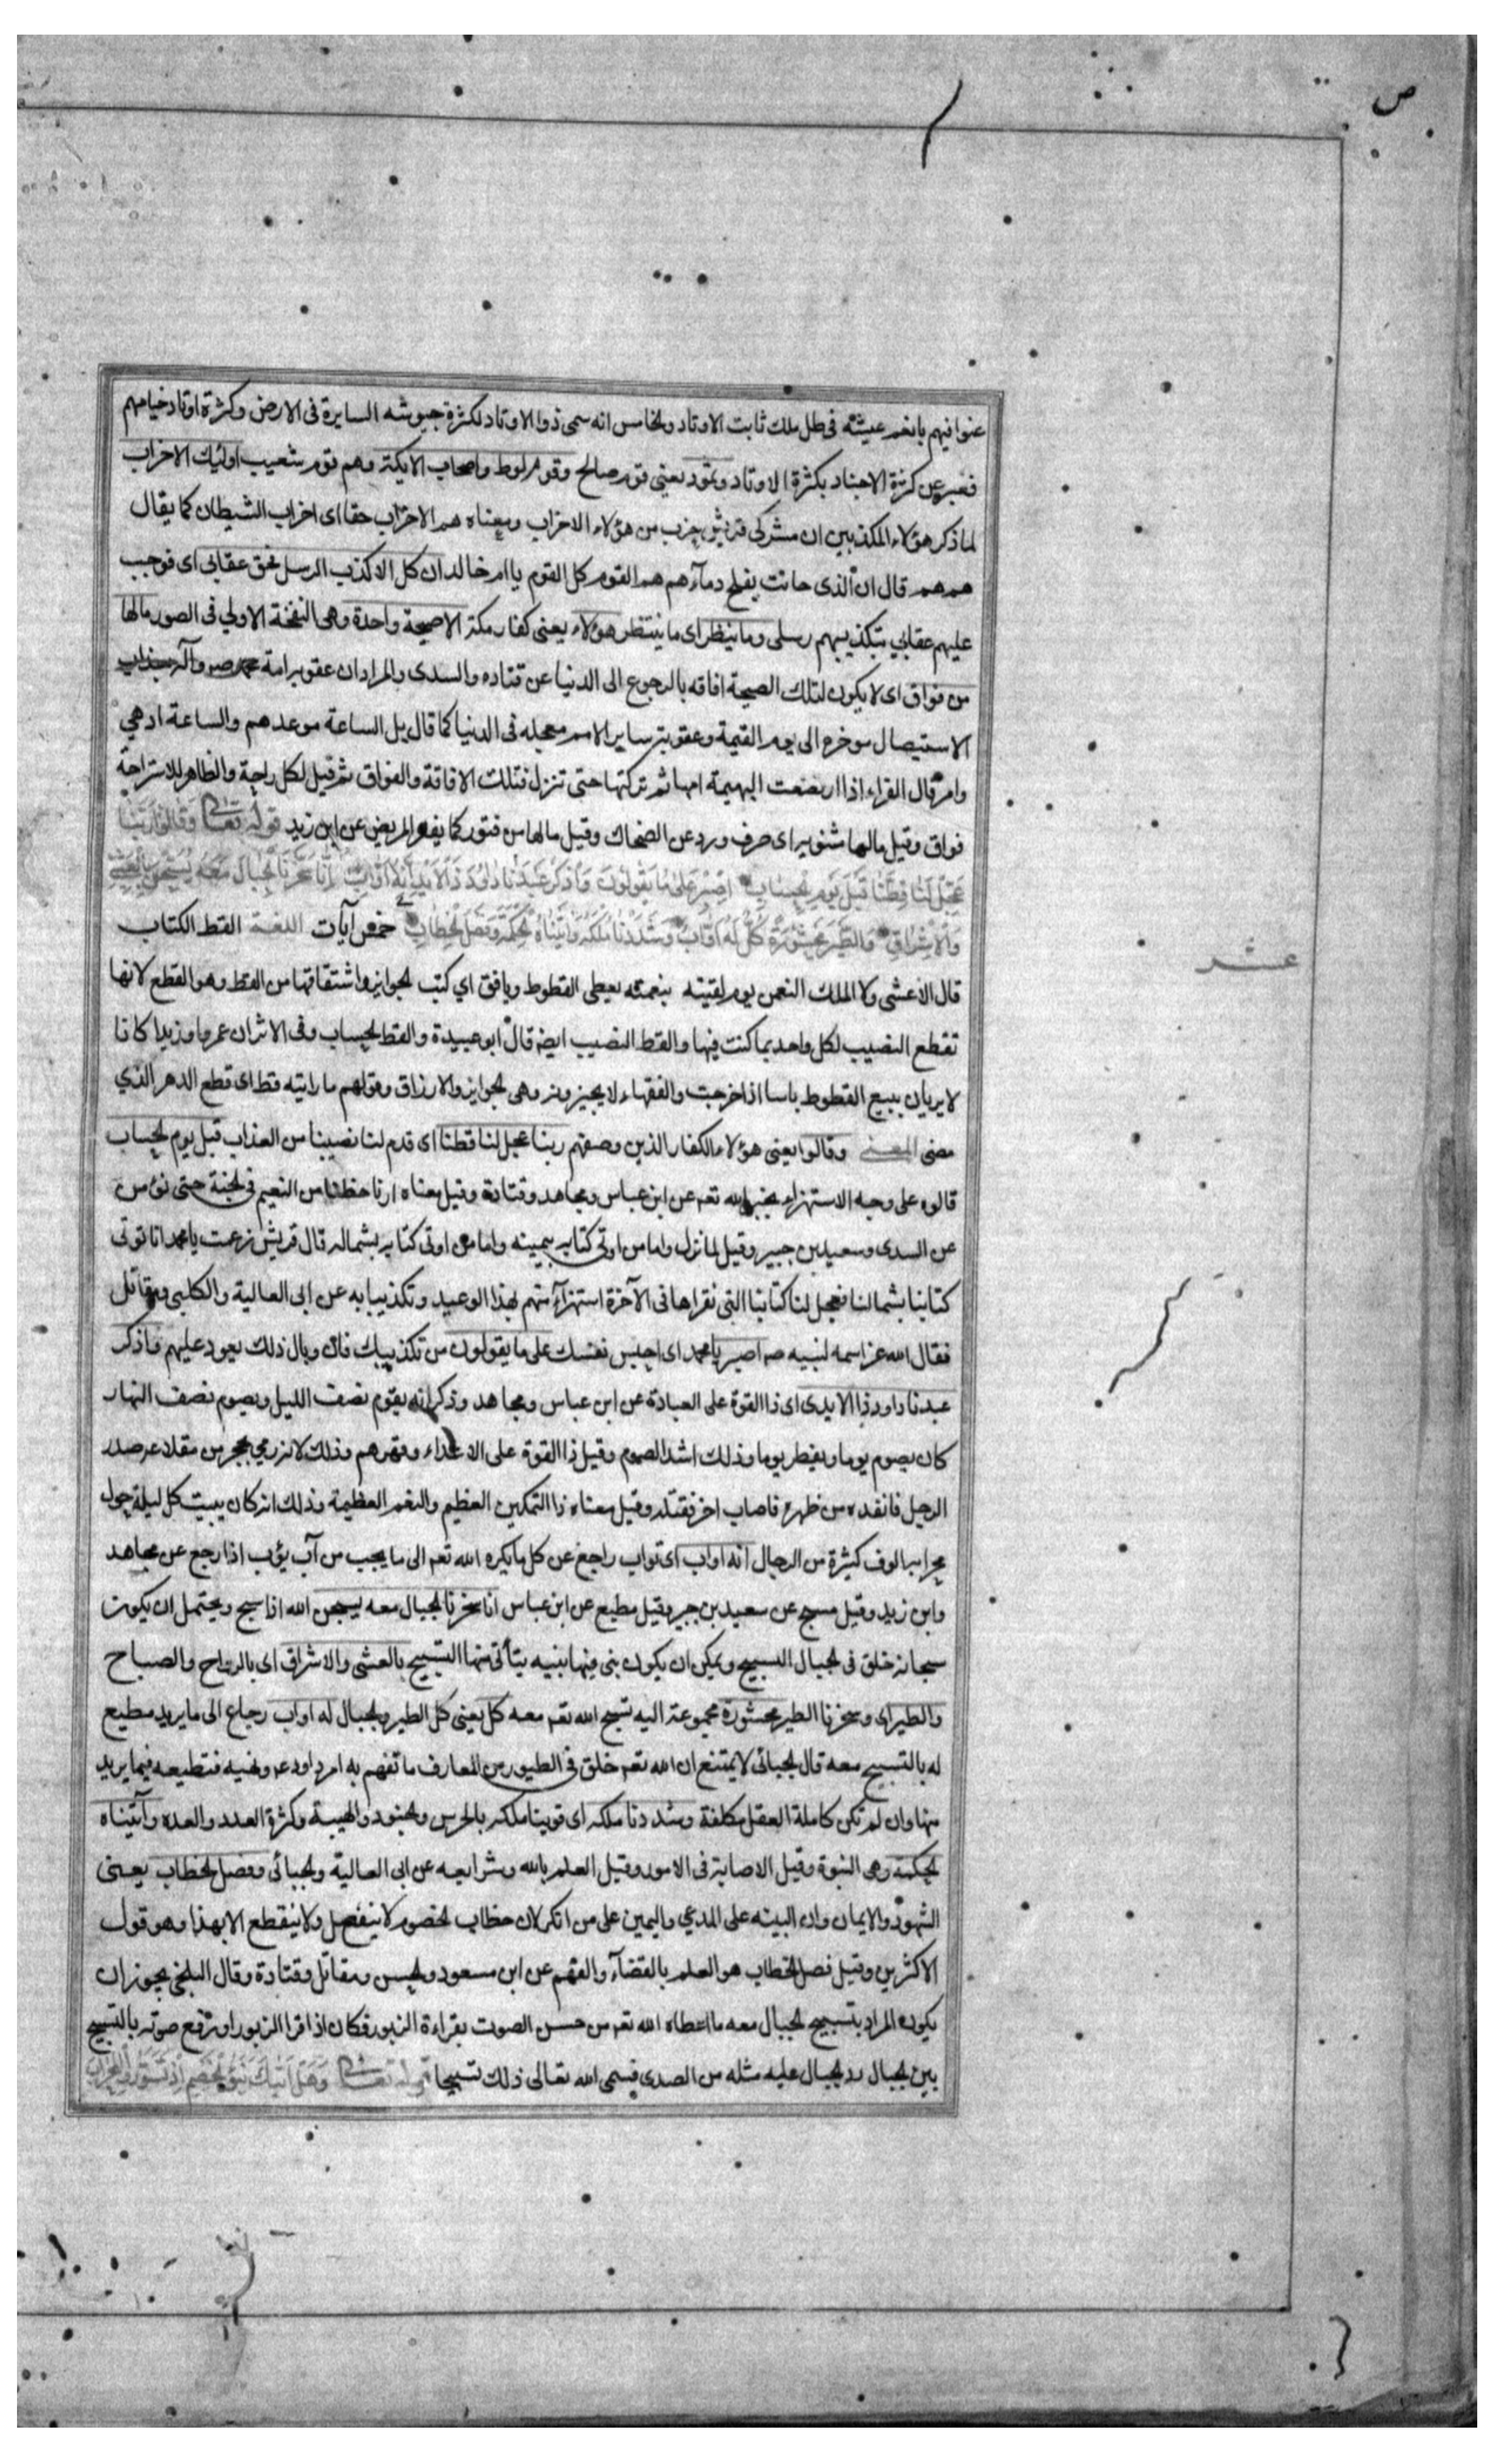 ص
غنوا فيهم بانعم عيشة فى ظل ملك ثابت الاوتاد والخامس انه سمى ذوالاوتاد لكثرة جيوشه السايرة فى الارض وكثرة اوتاد خيامهم
فعبر عن كثرة الاجناد بكثرة الاوتاد وثمود يعنى قوم صالح وقوم لوط واصحاب الايكة وهم قوم شعيب اولئك الاحزاب
لما ذكر هؤلاء المكذبين ان مشركى قريش حزب من هؤلاء الاحزاب ومعناه هم الاحزاب حقا اى احزاب الشيطان كما يقال
هم هم قال ان الذى حانت بفلج دمآءهم هم القوم كل القوم يا ام خالد ان كل الا كذب الرسل فحق عقابى اى فوجب
عليهم عقابي بتكذيبهم رسلى وما ينظر اى ما ينتظر هؤلاء يعنى كفار مكة الا صيحة واحدة وهى النفخة الاولي فى الصور مالها
من فواق اى لا يكون لتلك الصيحة افاقه بالرجوع الى الدنيا عن قتاده والسدى والمراد ان عقوبة امة محمد ص وآله بعذاب
الاستيصال موخرة الى يوم القيمة وعقوبة ساير الامم معجله فى الدنيا كما قال بل الساعة موعدهم والساعة ادهي
وامر قال الفراء اذا ارتضعت البهيمة امها ثم تركتها حتى تنزل فتلك الافاقة والفواق ثم قيل لكل راحة والظاهر للاستراحة
فواق وقيل مالها مثنوية اى صرف ورد عن الضحاك وقيل مالها من فتور كما يفتر المريض عن ابن زيد قوله تعالى وقالوا ربنا
عجل لنا قطنا قبل يوم الحساب اصبر على ما يقولون واذكر عبدنا داود ذا الايد انه اواب انا سخرنا الجبال معه يسبحن بالعشى
والاشراق والطير محشورة كل له اواب وشددنا ملكه واتيناه الحكمة وفصل الخطاب خمس آيات اللغة القط الكتاب
عشر
قال الاعشى ولا الملك النعمن يوم لقيته بنعمته يعطى القطوط ويافق اي كتب الجوايز واشتقاقها من القط وهو القطع لانها
تقطع النصيب لكل واحد بما كتب فيها والقط النصيب ايضا قال ابو عبيدة والقط الحساب وفى الاثر ان عمر وزيدا كانا
لا يريان ببيع القطوط باسا اذا خرجت والفقهاء لا يجيزونه وهى الجوايز والارزاق وقولهم ما رايته قط اى قطع الدهر الذي
مضى المعنى وقالوا يعنى هؤلاء الكفار الذين وصفهم ربنا عجل لنا قطنا اى قدم لنا نصيبنا من العذاب قبل يوم الحساب
قالوه على وجه الاستهزاء بخبر الله تعم عن ابن عباس ومجاهد وقتادة وقيل معناه ارنا حظنا من النعيم فى الجنة حتى نؤمن
عن السدى وسعيد بن جبير وقيل لما نزل واما من اوتى كتابه بيمينه واما من اوتى كتابه بشماله قال قريش زعمت يا محمد انا نوتى
كتابنا بشمالنا فعجل لنا كتابنا التى نقراها فى الآخرة استهزآء منهم لهذا الوعيد وتكذيبا به عن ابى العالية والكلبى ومقاتل
فقال الله عز اسمه لنبيه ص اصبر يا محمد اى احبس نفسك على ما يقولون من تكذيبك فان وبال ذلك يعود عليهم واذكر
عبدنا داود ذا الايدى اى ذا القوة على العبادة عن ابن عباس ومجاهد وذكر انه يقوم نصف الليل ويصوم نصف النهار
كان يصوم يوما ويفطر يوما وذلك اشد الصوم وقيل ذا القوة على الاعداء وقهرهم وذلك لانه رمي بحجر من مقلاعه صدر
الرجل فانفده من ظهره فاصاب اخر فقتله وقيل معناه ذا التمكين العظيم والنعم العظيمة وذلك انه كان يبيت كل ليلة حول
محرابه الوف كثيرة من الرجال انه اواب اى تواب راجع عن كل ما يكره الله تعم الى ما يحب من آب يؤب اذا رجع عن مجاهد
وابن زيد وقيل مسبح عن سعيد بن جبير وقيل مطيع عن ابن عباس انا سخرنا الجبال معه يسبحن الله اذا سبح ويحتمل ان يكون
سبحانه خلق فى الجبال التسبيح ويمكن ان يكون بنى فيها بنيه يتأتى منها التسبيح بالعشى والاشراق اى بالرواح والصباح
والطير اى وسخرنا الطير محشورة مجموعة اليه تسبح الله تعم معه كل يعنى كل الطير والجبال له اواب رجاع الى ما يريد مطيع
له بالتسبيح معه قال الجبائى لا يمتنع ان الله تعم خلق فى الطيور من المعارف ما تفهم به امر داود ع ونهيه فتطيعه فيما يريد
منها وان لم تكن كاملة العقل مكلفة وشددنا ملكه اى قوينا ملكه بالحرس والجنود والهيبة وكثرة العدد والعده وآتيناه
الحكمة وهى النبوة وقيل الاصابة فى الامور وقيل العلم بالله وشرايعه عن ابى العالية والجبائى وفصل الخطاب يعنى
الشهود والايمان وان البينه على المدعي واليمين على من انكر لان خطاب الخصوم لا ينفصل ولا ينقطع الا بهذا وهو قول
الاكثرين وقيل فصل الخطاب هو العلم بالقضآء والفهم عن ابن مسعود والحسن ومقاتل وقتادة وقال البلخى يجوز ان
يكون المراد بتسبيح الجبال معه ما اعطاه الله تعم من حسن الصوت بقراءة الزبور فكان اذا قرا الزبور او رفع صوته بالتسبيح
بين الجبال رد الجبال عليه مثله من الصدى فسمى الله تعالى ذلك تسبيحا قوله تعالى وهل اتيك نبؤ الخصم اذ تسوروا المحراب